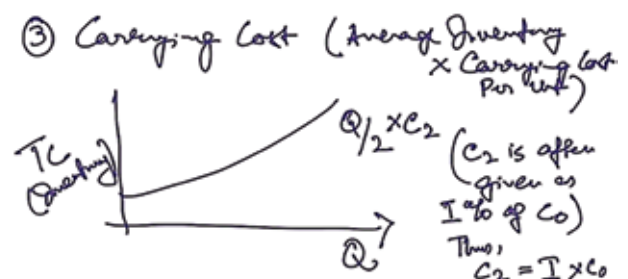 ③ Carrying Cost (Average Inventory
× Carrying Cost
Per unit)
TC
(Inventory)
Q/2 × C2
Q
(C2 is often
given as
I% of C0)
Thus,
C2 = I × C0